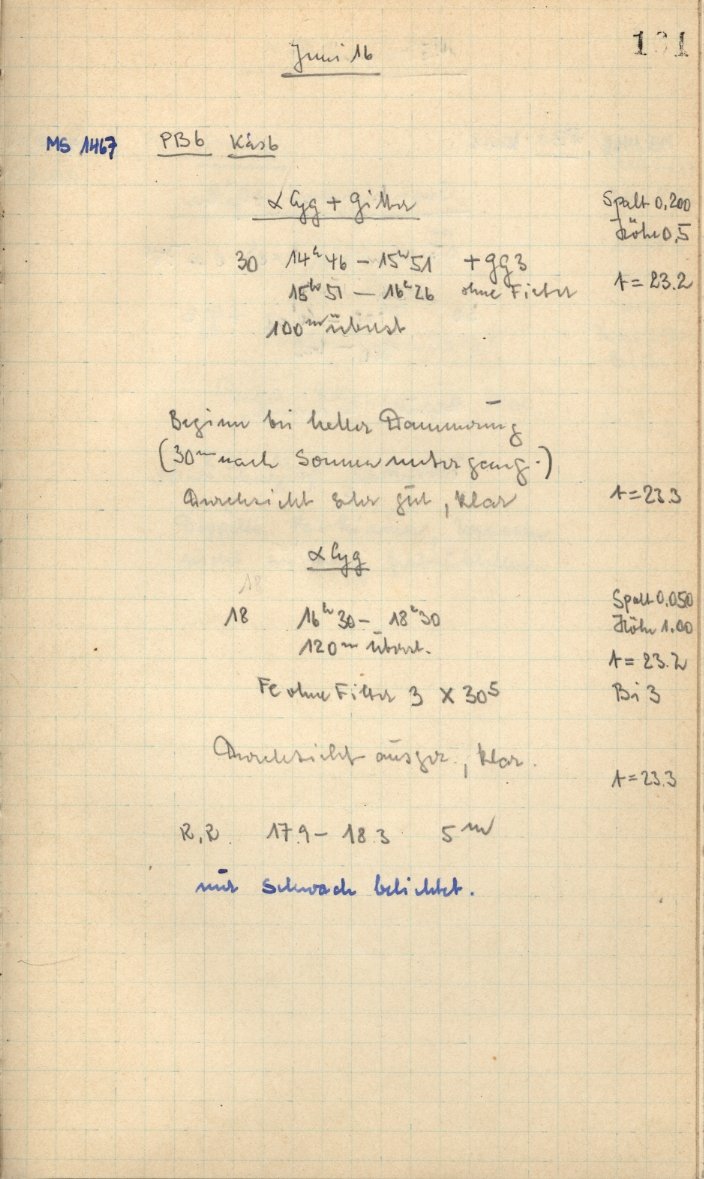 131
Juni 16
MS 1467 PBb Käsb
α Cyg + Gitter
Spalt 0,200
Höhe 0,5
30 14ʰ46 – 15ʰ51 + gg3
15ʰ51 – 16ʰ26 ohne Filter t = 23.2
100ᵐ übrst
Beginn bei heller Dämmerung
(30ᵐ nach Sonnenuntergang.)
Durchsicht sehr gut, klar t = 23.3
α Cyg
18
18 16ʰ30 – 18ʰ30
Spalt 0.050
Höhe 1.00
120ᵐ überst.
t = 23.2
Fe ohne Filter 3 × 30ˢ Bi 3
Durchsicht ausgez., klar.
t = 23.3
R,R 17.9 – 18.3 5ᵐ
nur schwach belichtet.